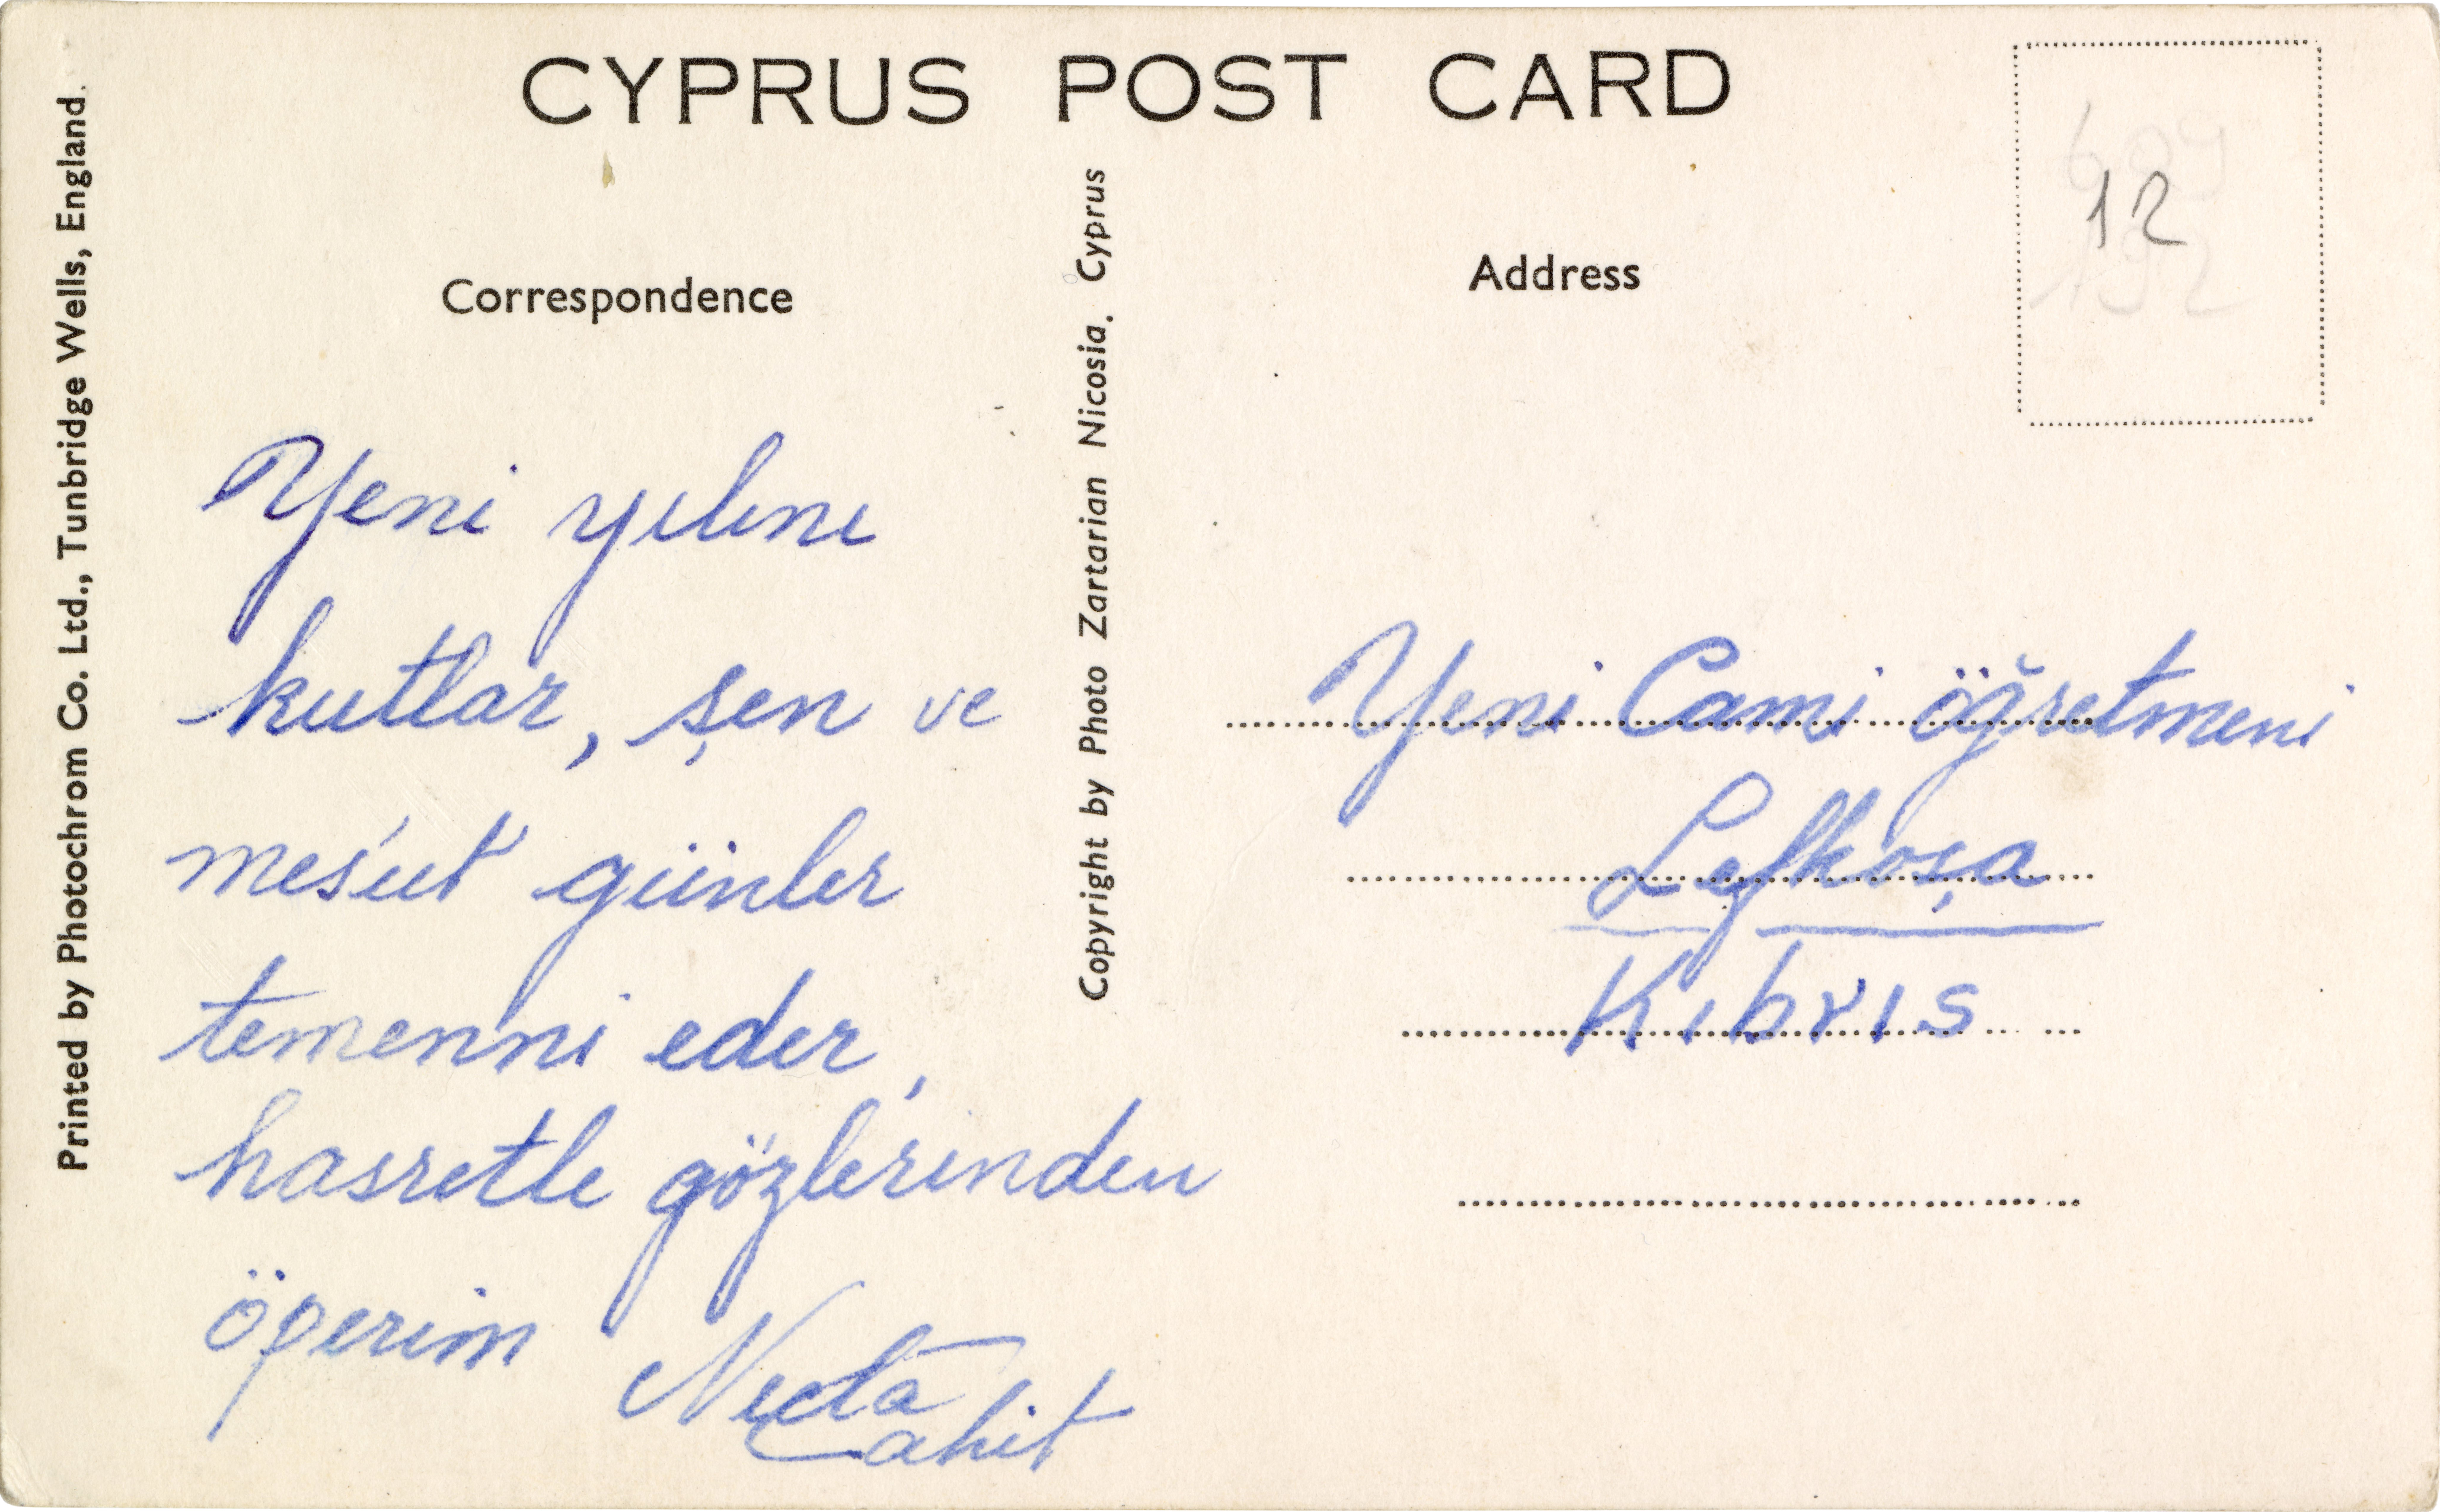 CYPRUS POST CARD
Printed by Photochrom Co. Ltd., Tunbridge Wells, England.
Correspondence
Yeni yılını
kutlar, şen ve
mes'ut günler
temenni eder,
hasretle gözlerinden
öperim
Cahit
Copyright by Photo Zartarian Nicosia. Cyprus
Address
12
Yeni Cami öğretmeni
Lefkoşa
Kıbrıs